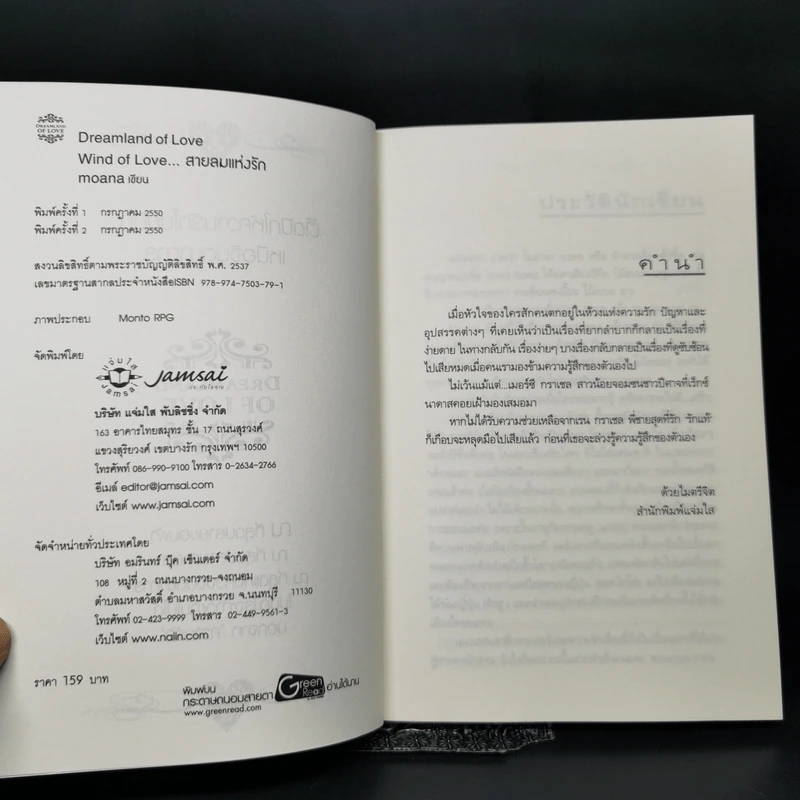 DREAMLAND
OF LOVE
Dreamland of Love
Wind of Love... สายลมแห่งรัก
moana เขียน
พิมพ์ครั้งที่ 1 กรกฎาคม 2550
พิมพ์ครั้งที่ 2 กรกฎาคม 2550
สงวนลิขสิทธิ์ตามพระราชบัญญัติลิขสิทธิ์ พ.ศ. 2537
เลขมาตรฐานสากลประจำหนังสือISBN 978-974-7503-79-1
ภาพประกอบ Monto RPG
จัดพิมพ์โดย
แจ่มใส
Jamsai
Jamsai
บริษัท แจ่มใส พับลิชชิ่ง จำกัด
163 อาคารไทยสมุทร ชั้น 17 ถนนสุรวงศ์
แขวงสุริยวงศ์ เขตบางรัก กรุงเทพฯ 10500
โทรศัพท์ 086-990-9100 โทรสาร 0-2634-2766
อีเมล์ editor@jamsai.com
เว็บไซต์ www.jamsai.com
จัดจำหน่ายทั่วประเทศโดย
บริษัท อมรินทร์ บุ๊ค เซ็นเตอร์ จำกัด
108 หมู่ที่ 2 ถนนบางกรวย-จงถนอม
ตำบลมหาสวัสดิ์ อำเภอบางกรวย จ.นนทบุรี 11130
โทรศัพท์ 02-423-9999 โทรสาร 02-449-9561-3
เว็บไซต์ www.naiin.com
ราคา 159 บาท
พิมพ์บน
กระดาษถนอมสายตา
www.greenread.com
Green
Read
อ่านได้นาน
คำนำ
เมื่อหัวใจของใครสักคนตกอยู่ในห้วงแห่งความรัก ปัญหาและ
อุปสรรคต่างๆ ที่เคยเห็นว่าเป็นเรื่องที่ยากลำบากก็กลายเป็นเรื่องที่
ง่ายดาย ในทางกลับกัน เรื่องง่ายๆ บางเรื่องกลับกลายเป็นเรื่องที่ดูซับซ้อน
ไปเสียหมดเมื่อคนเรามองข้ามความรู้สึกของตัวเองไป
ไม่เว้นแม้แต่...เมอร์ซี่ กราเซล สาวน้อยจอมซนชาวปีศาจที่เร็กซ์
นาดาสคอยเฝ้ามองเสมอมา
หากไม่ได้รับความช่วยเหลือจากเรน กราเซล พี่ชายสุดที่รัก 'รักแท้'
ก็เกือบจะหลุดมือไปเสียแล้ว ก่อนที่เธอจะล่วงรู้ความรู้สึกของตัวเอง
ด้วยไมตรีจิต
สำนักพิมพ์แจ่มใส